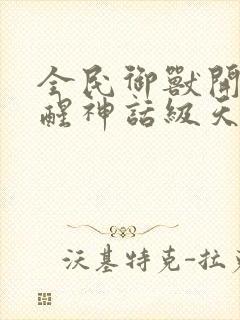 全民御獸開
醒神話級天
沃基特克-拉克